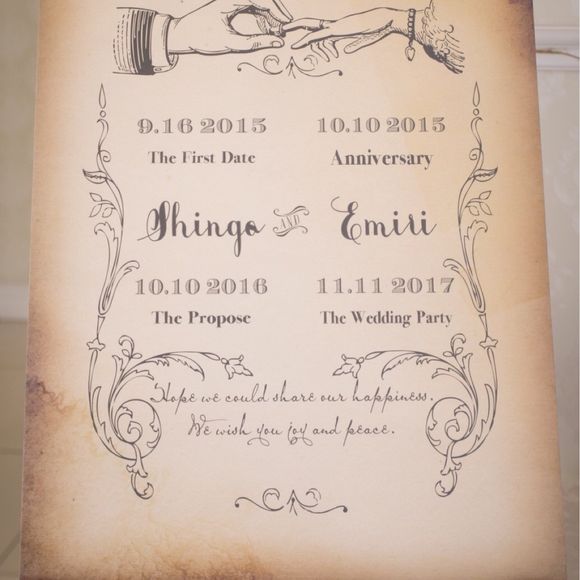 9.16 2015 10.10 2015
The First Date Anniversary
Shingo AND Emiri
10.10 2016 11.11 2017
The Propose The Wedding Party
Hope we could share our happiness.
We wish you joy and peace.